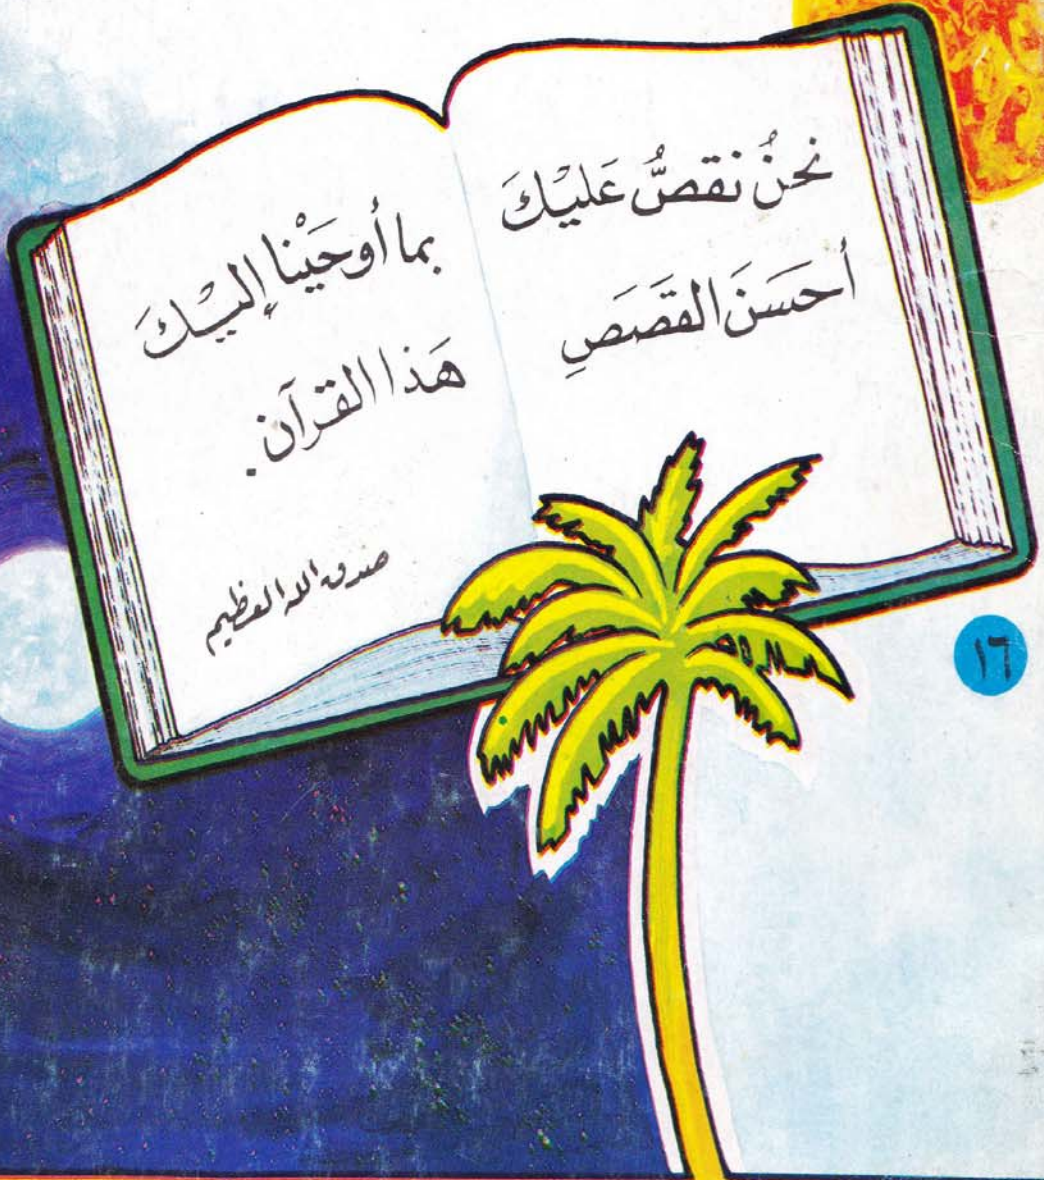 نحنُ نقصُّ عَليْكَ
أحسَنَ القَصَصِ
بما أوحَيْنا إليْكَ
هَذا القرآن.
صدق الله العظيم
١٦